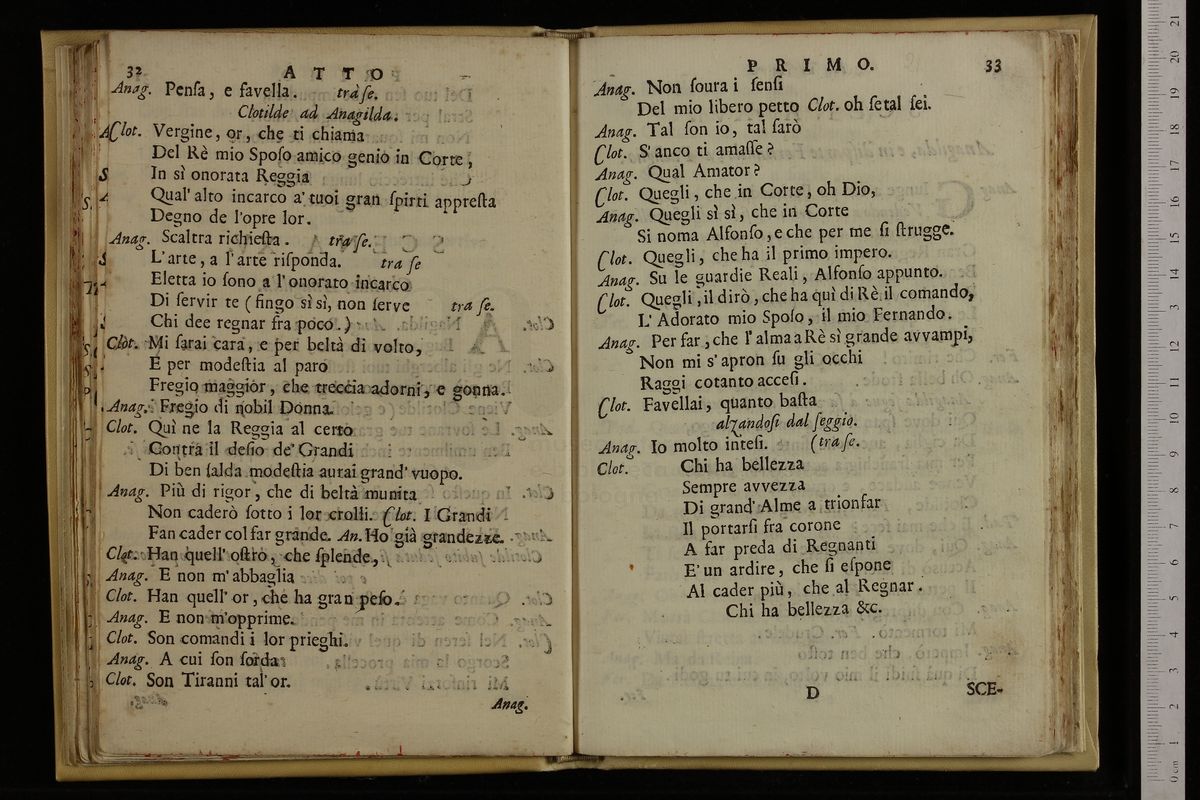 32 ATTO
Anag. Penſa, e favella. trà ſe.
Clotilde ad Anagilda.
Clot. Vergine, or, che ti chiama
Del Rè mio Spoſo amico genio in Corte,
In sì onorata Reggia
Qual' alto incarco a' tuoi gran ſpirti appreſta
Degno de l'opre lor.
Anag. Scaltra richieſta. tra ſe.
L'arte, a l'arte riſponda. tra ſe
Eletta io ſono a l'onorato incarco
Di ſervir te (fingo sì sì, non ſerve tra ſe.
Chi dee regnar fra poco.)
Clot. Mi ſarai cara, e per beltà di volto,
E per modeſtia al paro
Fregio maggior, che treccia adorni, e gonna.
Anag. Fregio di nobil Donna.
Clot. Quì ne la Reggia al certo
Contra il deſio de' Grandi
Di ben ſalda modeſtia aurai grand' vuopo.
Anag. Più di rigor, che di beltà munita
Non caderò ſotto i lor crolli. Clot. I Grandi
Fan cader col far grande. An. Ho già grandezze.
Clot. Han quell' oſtro, che ſplende,
Anag. E non m'abbaglia
Clot. Han quell' or, che ha gran peſo.
Anag. E non m'opprime.
Clot. Son comandi i lor prieghi.
Anag. A cui ſon ſorda:
Clot. Son Tiranni tal' or.
Anag.
PRIMO. 33
Anag. Non ſoura i ſenſi
Del mio libero petto Clot. oh ſe tal ſei.
Anag. Tal ſon io, tal ſarò
Clot. S'anco ti amaſſe?
Anag. Qual Amator?
Clot. Quegli, che in Corte, oh Dio,
Anag. Quegli sì sì, che in Corte
Si noma Alfonſo, e che per me ſi ſtrugge.
Clot. Quegli, che ha il primo impero.
Anag. Su le guardie Reali, Alfonſo appunto.
Clot. Quegli, il dirò, che ha quì di Rè il comando,
L'Adorato mio Spoſo, il mio Fernando.
Anag. Per far, che l'alma a Rè sì grande avvampi,
Non mi s'apron ſu gli occhi
Raggi cotanto acceſi.
Clot. Favellai, quanto baſta
alzandoſi dal ſeggio.
Anag. Io molto inteſi. (tra ſe.
Clot. Chi ha bellezza
Sempre avvezza
Di grand' Alme a trionfar
Il portarſi fra corone
A far preda di Regnanti
E' un ardire, che ſi eſpone
Al cader più, che al Regnar.
Chi ha bellezza &c.
D SCE-